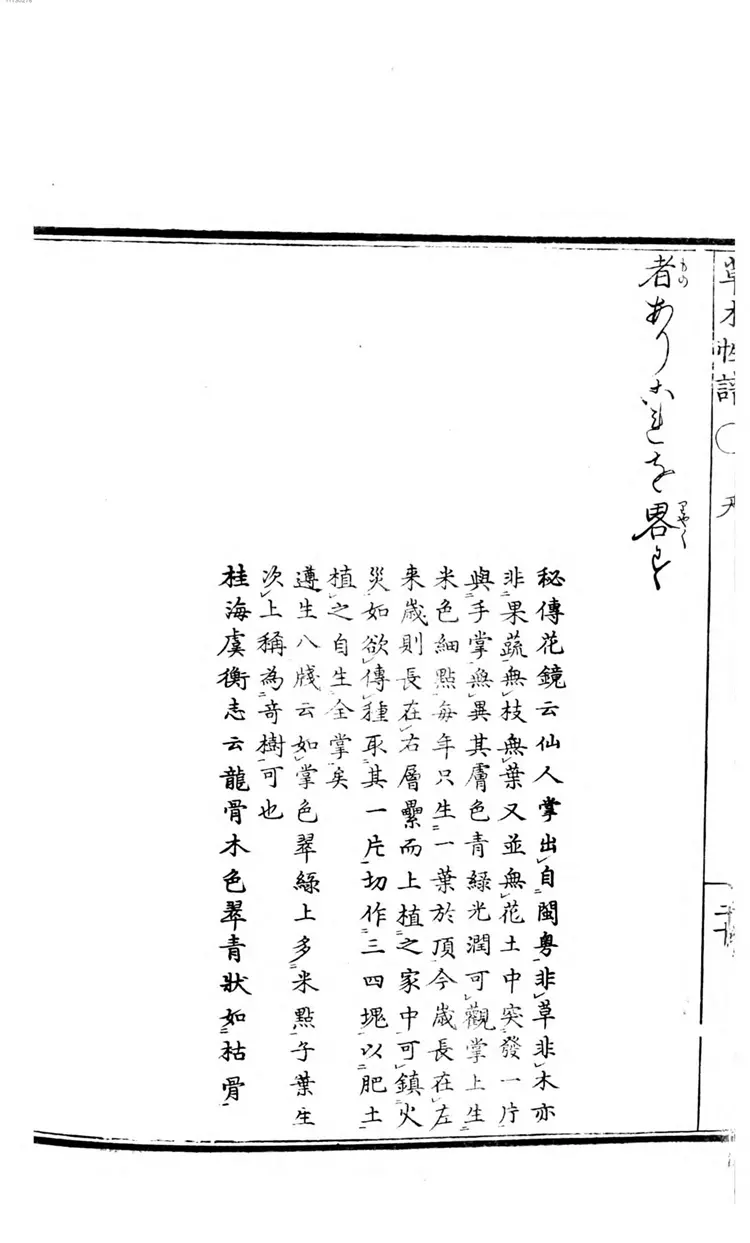 草木性譜
者ありこれを畧す
もの
りやく
秘傳花鏡云仙人掌出自閩粤非草非木亦
非果蔬無枝無葉又並無花土中突發一片
與手掌無異其膚色青緑光潤可觀掌上生
米色細點毎年只生一葉於頂今歳長在左
来歳則長在右層纍而上植之家中可鎮火
災如欲傳種取其一片切作三四塊以肥土
植之自生全掌矣
遵生八牋云如掌色翠緑上多米點子葉生
次上稱為竒樹可也
桂海虞衡志云龍骨木色翠青状如枯骨